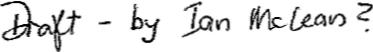 Draft - by Ian McLean?